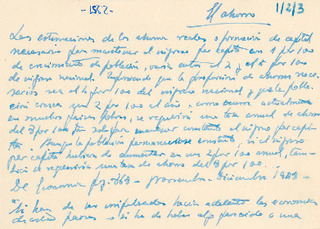 -1562-
El ahorro
1/2/3
Las estimaciones de los ahorros reales o formación de capital
necesarios para mantener el ingreso per capita en 1 por 100
de crecimiento de población, oscila entre el 2 y el 5 por 100
de ingreso nacional. Suponiendo que la proporción de ahorros neces-
arios sea el 4 por 100 del ingreso nacional y que la pobla-
ción crezca un 2 por 100 al año, como ocurre actualmente
en muchos países pobres, se requerirá una tasa anual de ahorro
del 8 por 100 tan solo para mantener constante el ingreso per cápi-
ta. Aunque la población permaneciese constante, si el ingreso
per capita hubiera de aumentar en un 2 por 100 anual, tam-
bién se requeriría una tasa de ahorro del 8 por 100.
De Economía pg. 763 - noviembre-diciembre 1959
"Si han de ser impulsadas hacia adelante las economías
de estos países y si ha de haber algo parecido a una